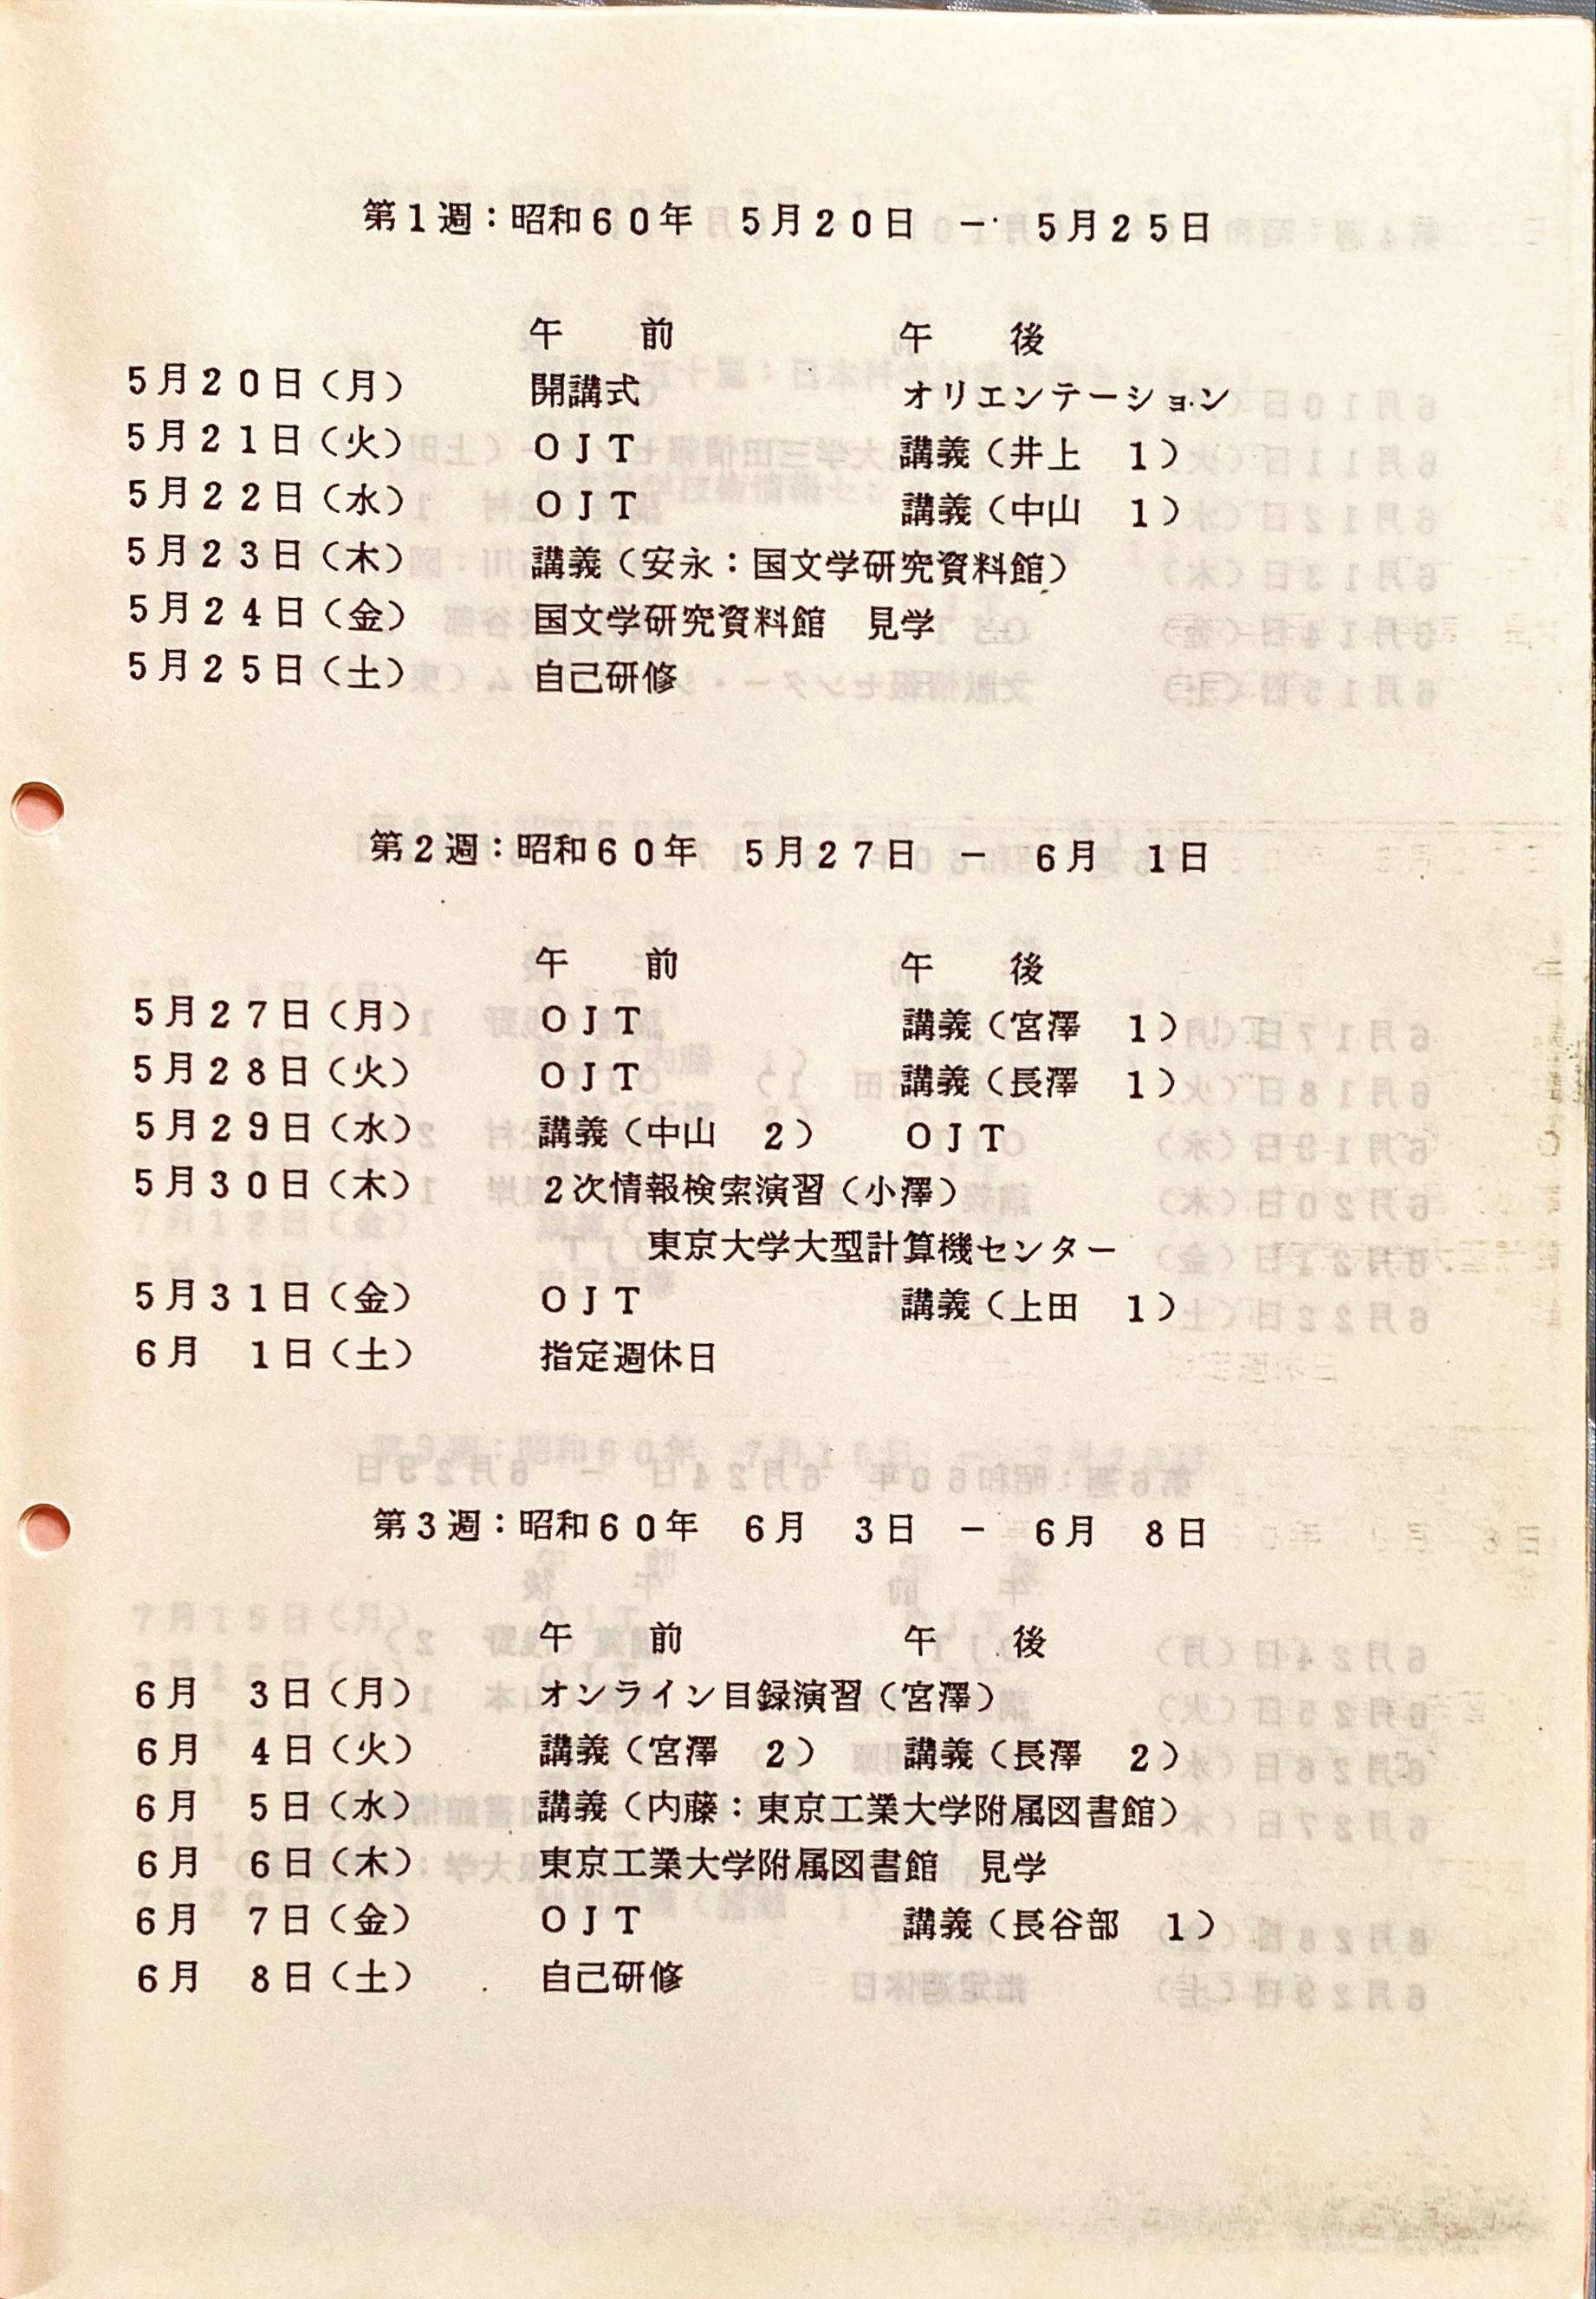 第1週：昭和60年　5月20日　－　5月25日
午　　前　　　　　　午　　後
5月20日（月）　　　開講式　　　　　　　オリエンテーション
5月21日（火）　　　OJT　　　　　　　講義（井上　1）
5月22日（水）　　　OJT　　　　　　　講義（中山　1）
5月23日（木）　　　講義（安永：国文学研究資料館）
5月24日（金）　　　国文学研究資料館　見学
5月25日（土）　　　自己研修
第2週：昭和60年　5月27日　－　6月　1日
午　　前　　　　　　午　　後
5月27日（月）　　　OJT　　　　　　　講義（宮澤　1）
5月28日（火）　　　OJT　　　　　　　講義（長澤　1）
5月29日（水）　　　講義（中山　2）　　OJT
5月30日（木）　　　2次情報検索演習（小澤）
東京大学大型計算機センター
5月31日（金）　　　OJT　　　　　　　講義（上田　1）
6月　1日（土）　　　指定週休日
第3週：昭和60年　6月　3日　－　6月　8日
午　　前　　　　　　午　　後
6月　3日（月）　　　オンライン目録演習（宮澤）
6月　4日（火）　　　講義（宮澤　2）　　講義（長澤　2）
6月　5日（水）　　　講義（内藤：東京工業大学附属図書館）
6月　6日（木）　　　東京工業大学附属図書館　見学
6月　7日（金）　　　OJT　　　　　　　講義（長谷部　1）
6月　8日（土）　　　自己研修